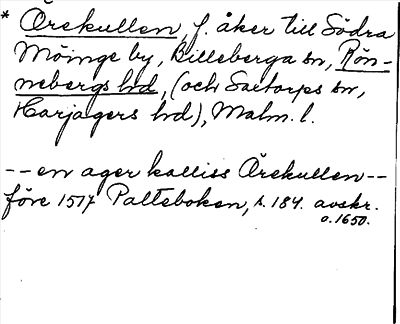 * Örekullen, f. åker till Södra
Möinge by, Billeberga sn, Rön-
nebergs hd, (och Sartorps sn,
Harjagers hd), Malm. l.
-- en ager kalliss Örekullen --
före 1517 Palteboken, s. 184. avskr.
o. 1650.